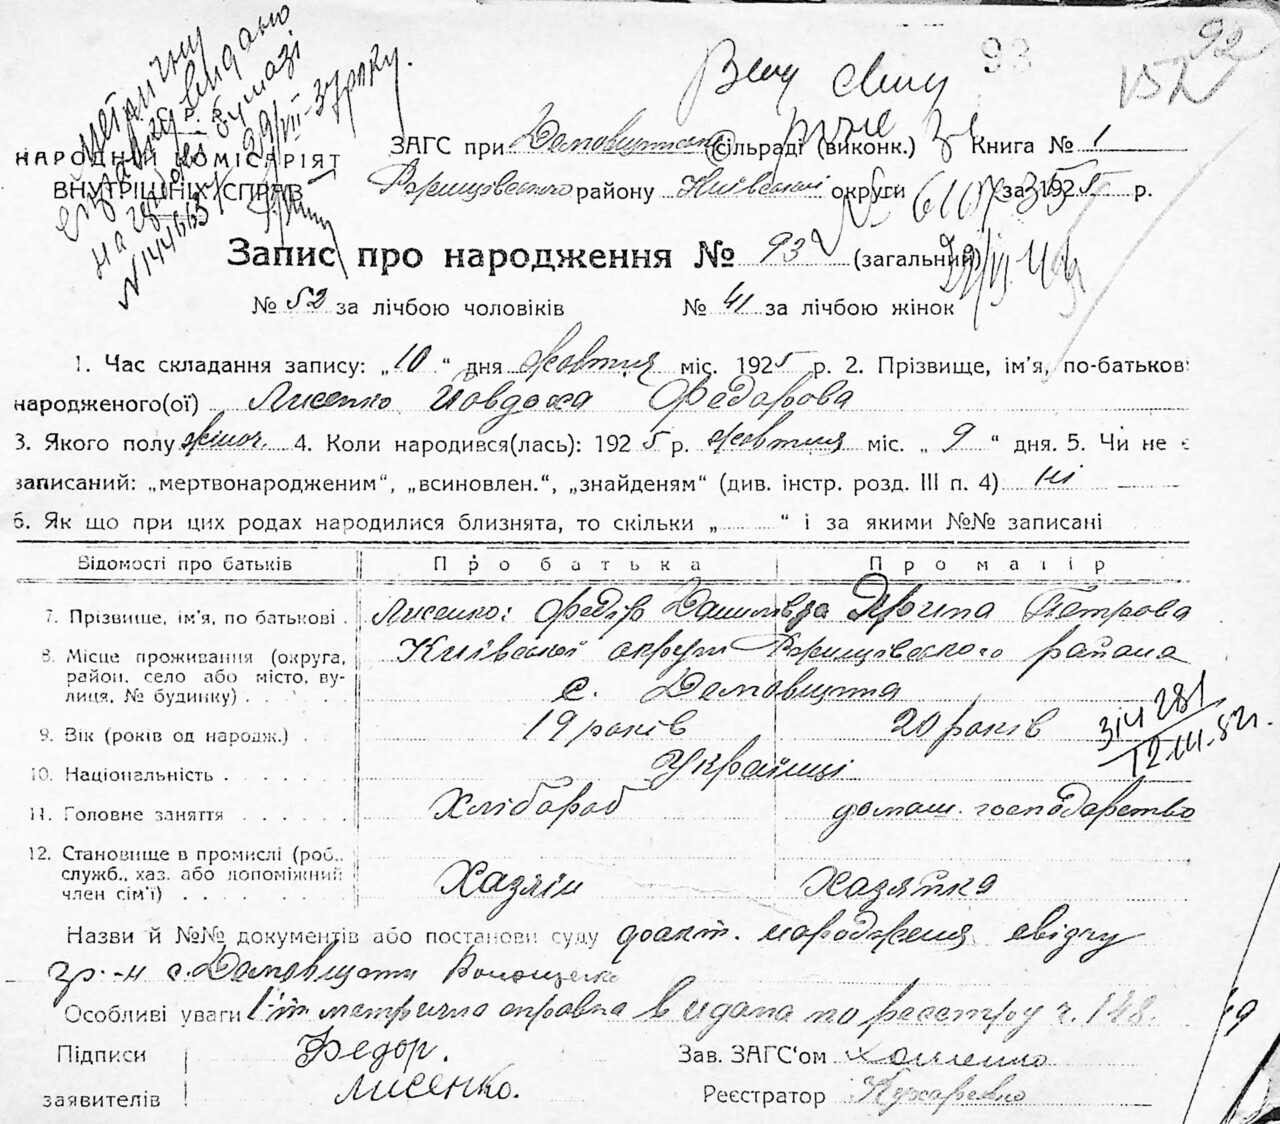 93
92
152
метричну
видано
на
29/VII-37 року.
№144665
НАРОДНІЙ КОМІСАРІЯТ
ВНУТРІШНІХ СПРАВ
ЗАГС при Демовщинськ сільраді (виконк.) Книга № 1
Ржищівського району Київської округи за 1925 р.
№ 610735
Запис про народження № 93 (загальний)
№ 52 за лічбою чоловіків № 41 за лічбою жінок
1. Час складання запису: „10“ дня жовтня міс. 1925 р. 2. Прізвище, ім'я, по-батькові
народженого(ої) Лисенко Йовдоха Федорова
3. Якого полу жіноч. 4. Коли народився(лась): 1925 р. жовтня міс. „9“ дня. 5. Чи не є
записаний: „мертвонародженим“, „всиновлен.“, „знайденям“ (див. інстр. розд. III п. 4) ні
6. Як що при цих родах народилися близнята, то скільки „ “ і за якими №№ записані
Відомості про батьків Про батька Про матір
7. Прізвище, ім'я, по батькові . Лисенко: Федір Данилів за Ярина Петрова
8. Місце проживання (округа, район, село або місто, вулиця, № будинку) . Київської округи Ржищівського района
с. Демовщина
9. Вік (років од народж.) . 19 років 20 років
314281
12.III.82г.
10. Національність . Українці
11. Головне заняття . Хлібороб домаш. господарство
12. Становище в промислі (роб., служб., хаз. або допоміжний член сім'ї) . Хазяїн Хазяйка
Назви й №№ документів або постанови суду факт. народження свідчу
гр-н с. Демовщини
Особливі уваги І-ша метрична справка видана по реєстру ч. 148.
Підписи Федор. Зав. ЗАГС'ом
заявителів Лисенко. Реєстратор